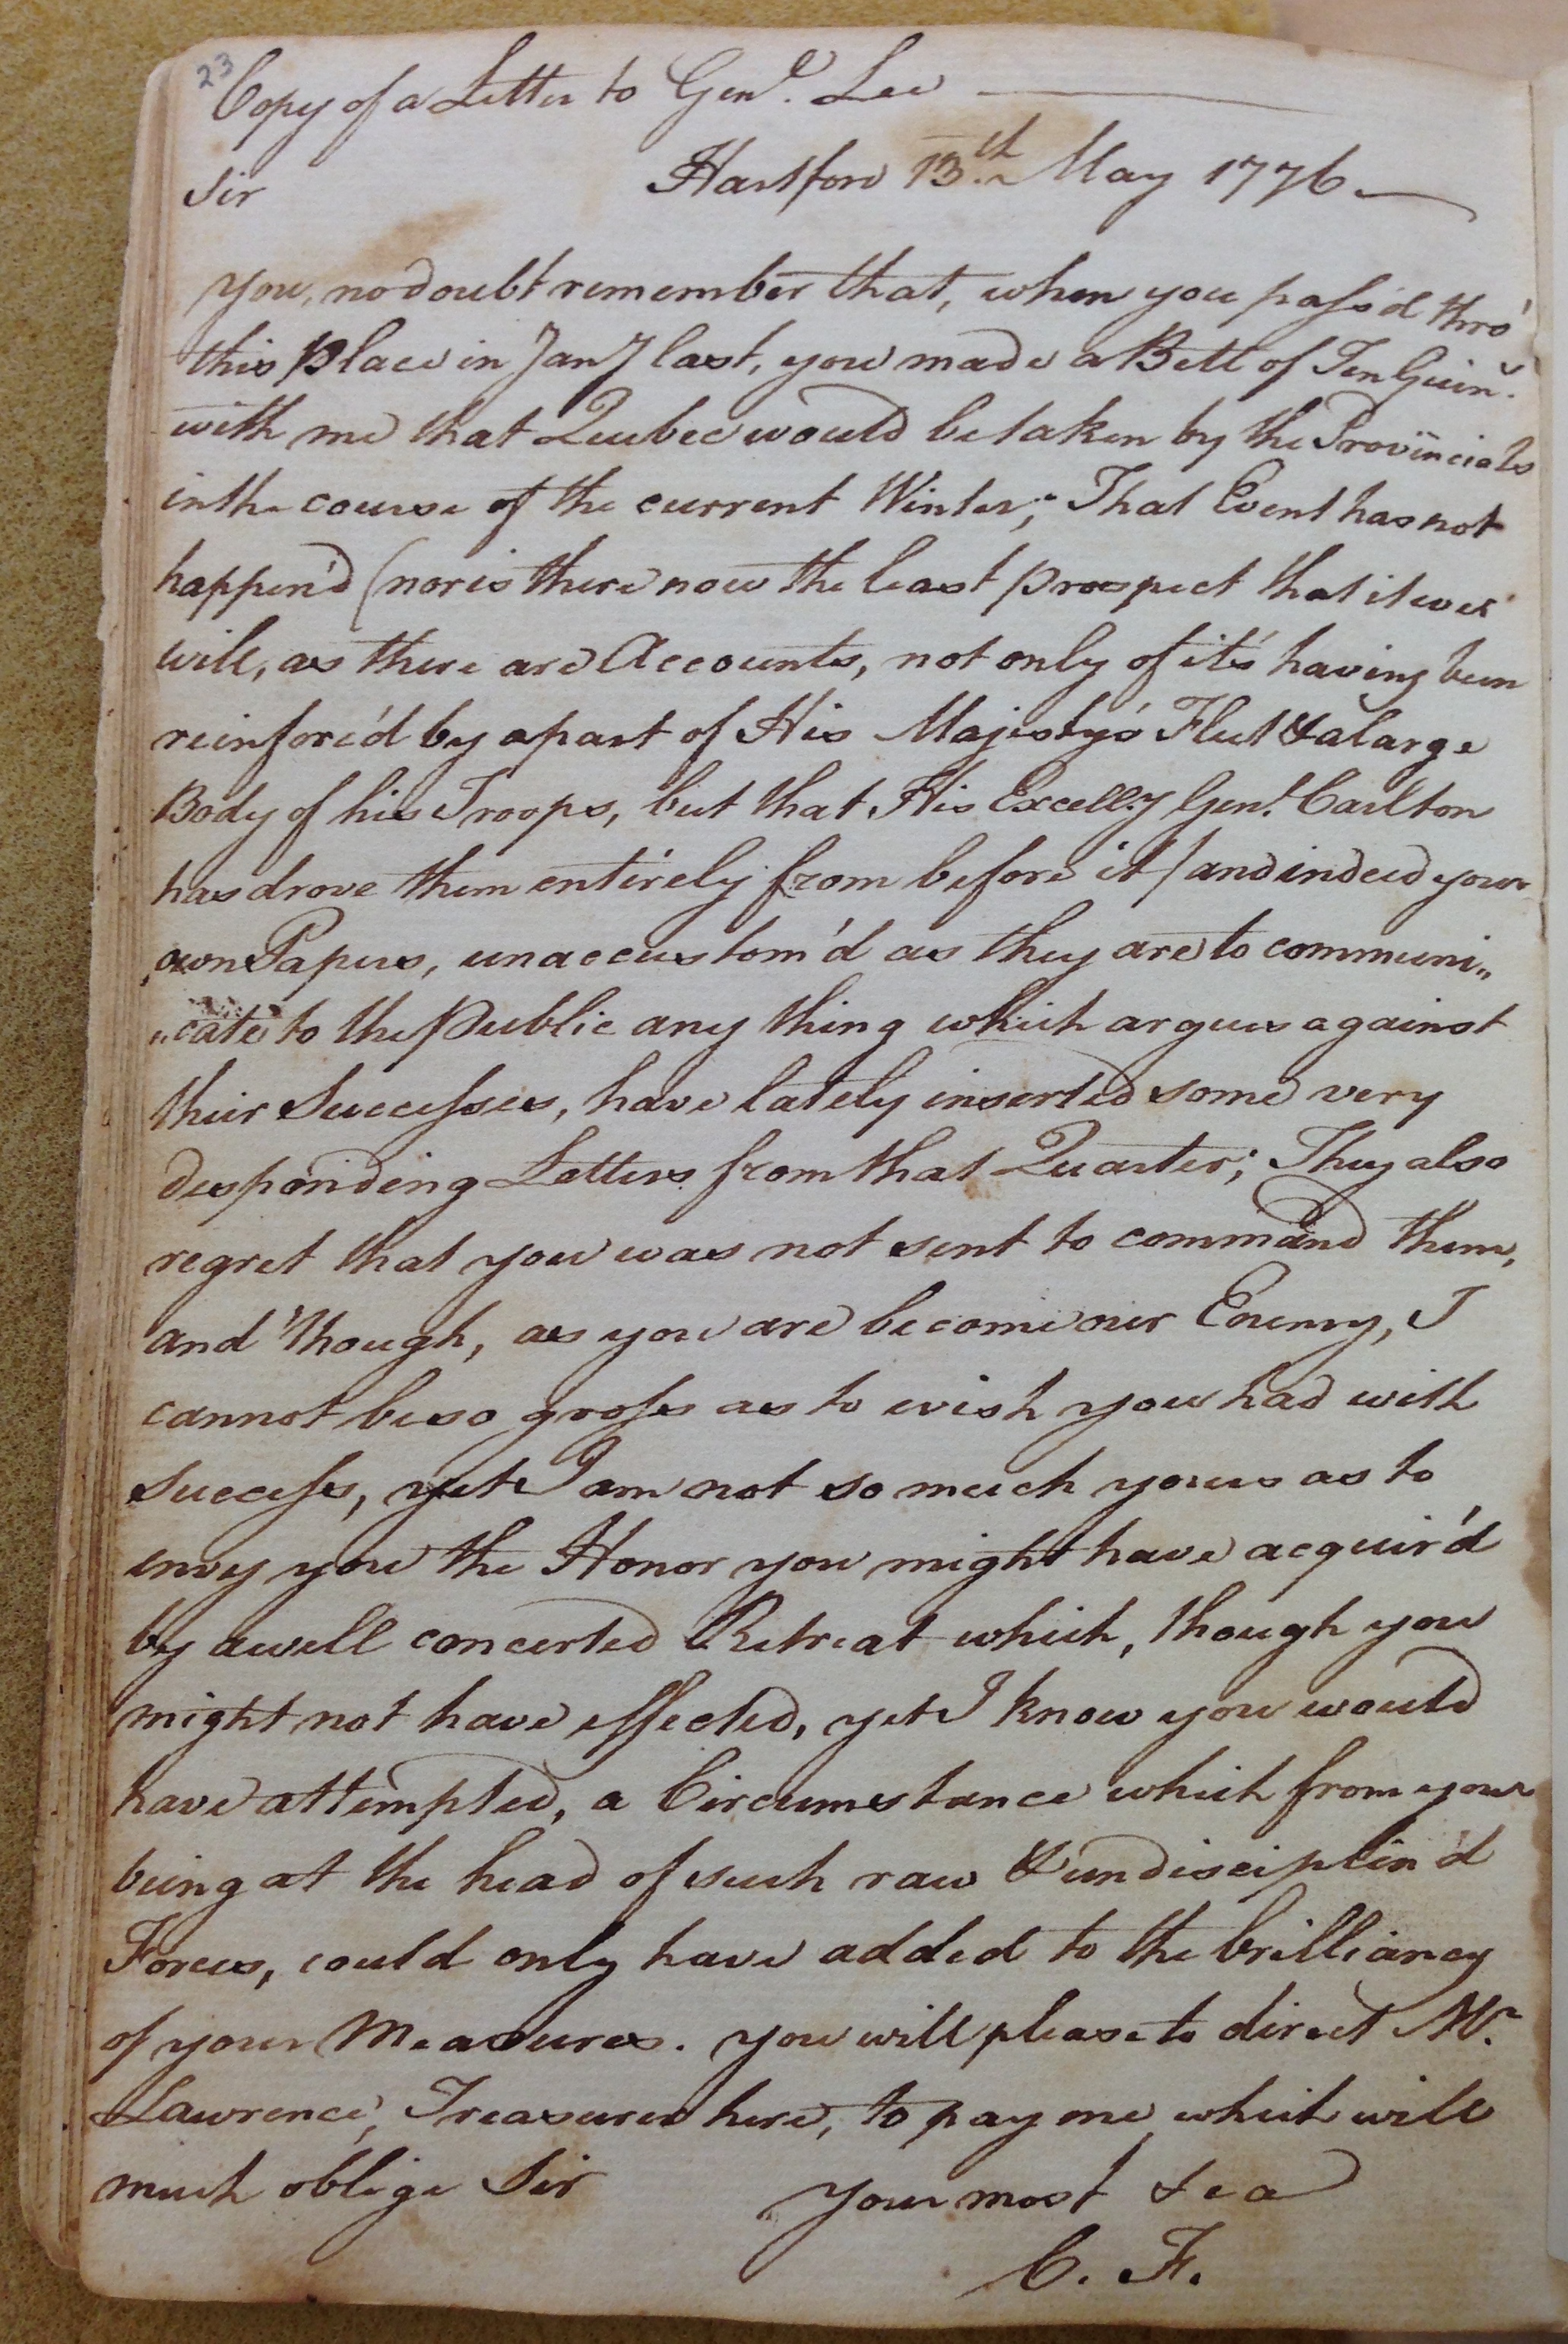 23
Copy of a Letter to Genl. Lee
Hartford 13th. May 1776
Sir
You, no doubt remember that, when you pass'd thro'
this Place in Jany last, you made a Bett of Ten Guins.
with me that Quebec would be taken by the Provincials
in the course of the current Winter; That Event has not
happen'd (nor is there now the least prospect that it ever
will, as there are Accounts, not only of it's having been
reinforc'd by a part of His Majesty's Fleet & a large
Body of his Troops, but that His Excelly Genl. Carlton
has drove them entirely from before it) and indeed your
own Papers, unaccustom'd as they are to communi„
„cate to the Public any thing which argues against
their Successes, have lately inserted some very
desponding Letters from that Quarter; They also
regret that you was not sent to command them,
and 'though, as you are become our Enemy, I
cannot be so gross as to wish you had with
Success, yet I am not so much yours as to
envy you the Honor you might have acquir'd
by a well concerted Retreat which, though you
might not have effected, yet I know you would
have attempted, a Circumstance which from your
being at the head of such raw & undisciplin'd
Forces, could only have added to the brilliancy
of your Measures. You will please to direct Mr.
Lawrence, Treasurer here, to pay me, which will
much oblige Sir
Your most &ca
C. F.